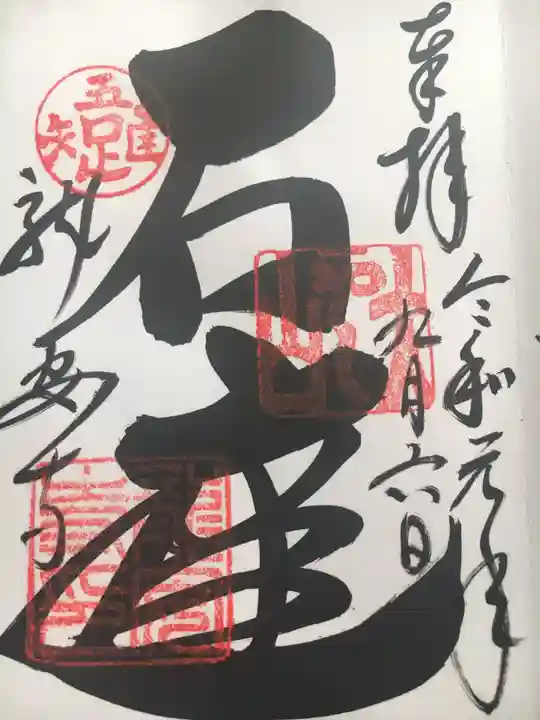 奉拝
令和元年
九月六日
石庭
龍安寺
吾唯足知